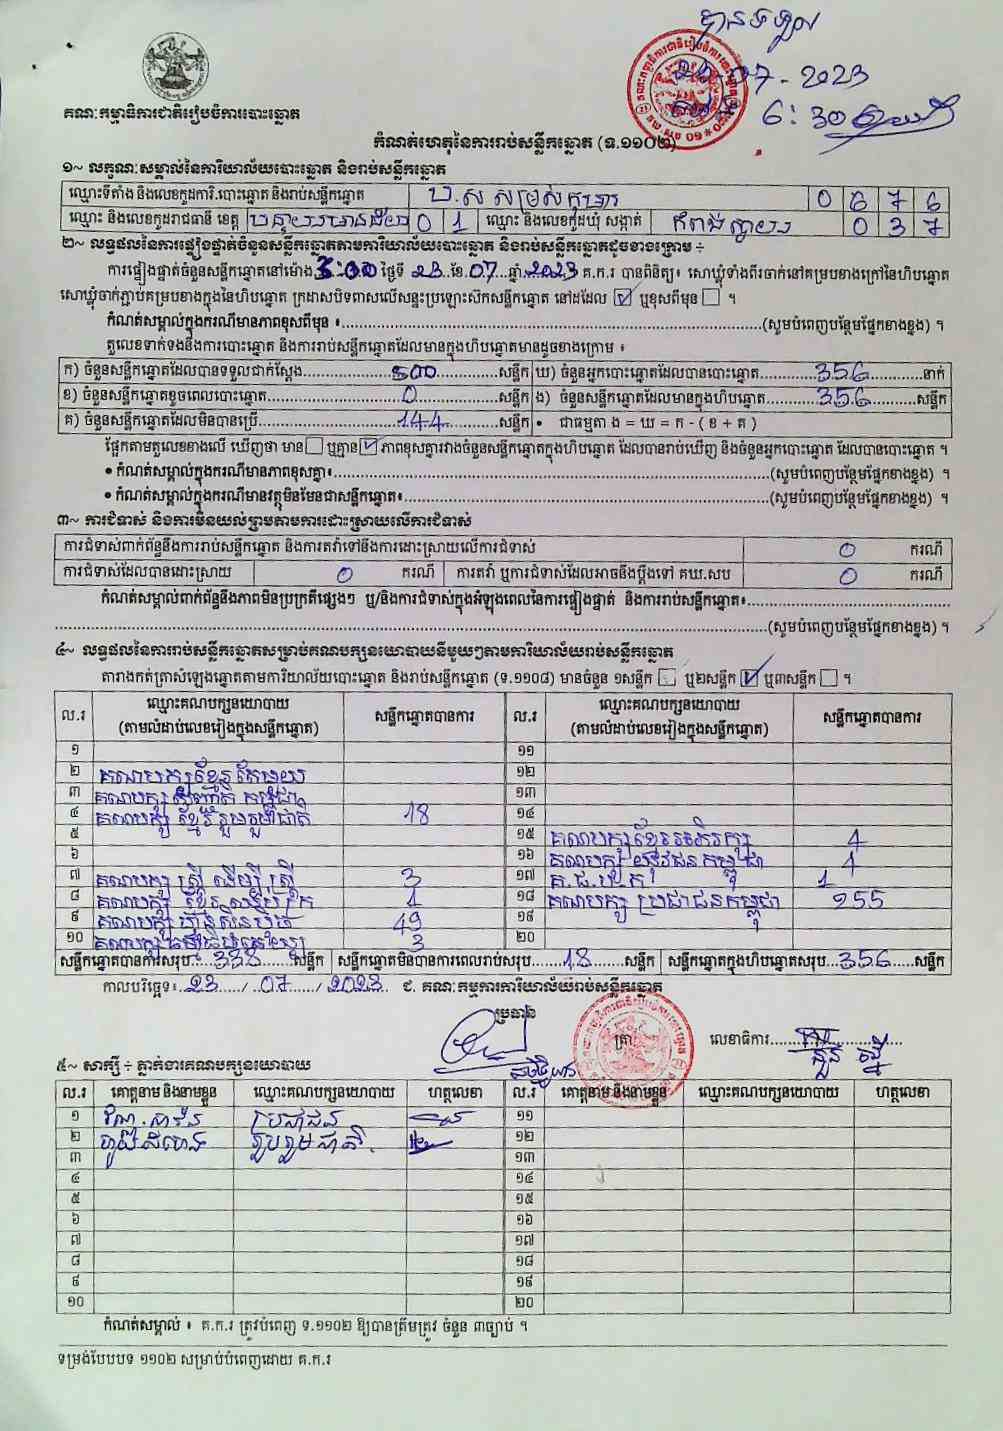 បានទទួល
23-07-2023
6:30
គណៈកម្មាធិការជាតិរៀបចំការបោះឆ្នោត
កំណត់ហេតុនៃការរាប់សន្លឹកឆ្នោត (ទ.១១០២)
១~ លក្ខណៈសម្គាល់នៃការិយាល័យបោះឆ្នោត និងរាប់សន្លឹកឆ្នោត
ឈ្មោះទីតាំង និងលេខកូដការិ.បោះឆ្នោត និងរាប់សន្លឹកឆ្នោត ប.ស សម្រស់កុមារ 0 6 7 6
ឈ្មោះ និងលេខកូដរាជធានី ខេត្ត បន្ទាយមានជ័យ 0 1 ឈ្មោះ និងលេខកូដឃុំ សង្កាត់ កំពង់ស្វាយ 0 3 7
២~ លទ្ធផលនៃការផ្ទៀងផ្ទាត់ចំនួនសន្លឹកឆ្នោតតាមការិយាល័យបោះឆ្នោត និងរាប់សន្លឹកឆ្នោតដូចខាងក្រោម ÷
ការផ្ទៀងផ្ទាត់ចំនួនសន្លឹកឆ្នោតនៅម៉ោង 3:00 ថ្ងៃទី 23 ខែ 07 ឆ្នាំ 2023 គ.ក.រ បានពិនិត្យ៖ សោឃ្លុំទាំងពីរចាក់នៅគម្របខាងក្រៅនៃហិបឆ្នោត
សោឃ្លុំចាក់ភ្ជាប់គម្របខាងក្នុងនៃហិបឆ្នោត ក្រដាសបិទពាសលើសន្ទះប្រឡោះសឹកសន្លឹកឆ្នោត នៅដដែល ☑ ឬខុសពីមុន ☐ ។
កំណត់សម្គាល់ក្នុងករណីមានភាពខុសពីមុន ៖ (សូមបំពេញបន្ថែមផ្នែកខាងខ្នង) ។
តួលេខទាក់ទងនឹងការបោះឆ្នោត និងការរាប់សន្លឹកឆ្នោតដែលមានក្នុងហិបឆ្នោតមានដូចខាងក្រោម ៖
ក) ចំនួនសន្លឹកឆ្នោតដែលបានទទួលជាក់ស្តែង 500 សន្លឹក ឃ) ចំនួនអ្នកបោះឆ្នោតដែលបានបោះឆ្នោត 356 នាក់
ខ) ចំនួនសន្លឹកឆ្នោតខូចពេលបោះឆ្នោត 0 សន្លឹក ង) ចំនួនសន្លឹកឆ្នោតដែលមានក្នុងហិបឆ្នោត 356 សន្លឹក
គ) ចំនួនសន្លឹកឆ្នោតដែលមិនបានប្រើ 144 សន្លឹក • ជាធម្មតា ង = ឃ = ក - ( ខ + គ )
ផ្អែកតាមតួលេខខាងលើ ឃើញថា មាន ☐ ឬគ្មាន ☑ ភាពខុសគ្នារវាងចំនួនសន្លឹកឆ្នោតក្នុងហិបឆ្នោត ដែលបានរាប់ឃើញ និងចំនួនអ្នកបោះឆ្នោត ដែលបានបោះឆ្នោត ។
• កំណត់សម្គាល់ក្នុងករណីមានភាពខុសគ្នា៖ (សូមបំពេញបន្ថែមផ្នែកខាងខ្នង) ។
• កំណត់សម្គាល់ក្នុងករណីមានវត្ថុមិនមែនជាសន្លឹកឆ្នោត៖ (សូមបំពេញបន្ថែមផ្នែកខាងខ្នង) ។
៣~ ការជំទាស់ និងការមិនយល់ព្រមតាមការដោះស្រាយលើការជំទាស់
ការជំទាស់ពាក់ព័ន្ធនឹងការរាប់សន្លឹកឆ្នោត និងការតវ៉ាទៅនឹងការដោះស្រាយលើការជំទាស់ 0 ករណី
ការជំទាស់ដែលបានដោះស្រាយ 0 ករណី ការតវ៉ា ឬការជំទាស់ដែលអាចនឹងប្តឹងទៅ គឃ.សប 0 ករណី
កំណត់សម្គាល់ពាក់ព័ន្ធនឹងភាពមិនប្រក្រតីផ្សេងៗ ឬ/និងការជំទាស់ក្នុងអំឡុងពេលនៃការផ្ទៀងផ្ទាត់ និងការរាប់សន្លឹកឆ្នោត៖
(សូមបំពេញបន្ថែមផ្នែកខាងខ្នង) ។
៤~ លទ្ធផលនៃការរាប់សន្លឹកឆ្នោតសម្រាប់គណបក្សនយោបាយនីមួយៗតាមការិយាល័យរាប់សន្លឹកឆ្នោត
តារាងកត់ត្រាសំឡេងឆ្នោតតាមការិយាល័យបោះឆ្នោត និងរាប់សន្លឹកឆ្នោត (ទ.១១០៨) មានចំនួន ១សន្លឹក ☐ ឬ២សន្លឹក ☑ ឬ៣សន្លឹក ☐ ។
ល.រ ឈ្មោះគណបក្សនយោបាយ (តាមលំដាប់លេខរៀងក្នុងសន្លឹកឆ្នោត) សន្លឹកឆ្នោតបានការ ល.រ ឈ្មោះគណបក្សនយោបាយ (តាមលំដាប់លេខរៀងក្នុងសន្លឹកឆ្នោត) សន្លឹកឆ្នោតបានការ
១ ១១
២ គណបក្សខ្មែរតែមួយ ១២
៣ គណបក្ស សញ្ជាតិ កម្ពុជា ១៣
៤ គណបក្ស ខ្មែររួបរួមជាតិ 18 ១៤
៥ ១៥ គណបក្សខ្មែរអភិរក្ស 4
៦ ១៦ គណបក្ស យុវជនកម្ពុជា 1
៧ គណបក្ស ស្ត្រី ដើម្បី ស្ត្រី 3 ១៧ គ.ជ.ប.ក 1
៨ គណបក្ស ខ្មែរឈប់ក្រ 1 ១៨ គណបក្ស ប្រជាជនកម្ពុជា 255
៩ គណបក្ស ហ៊្វុនស៊ិនប៉ិច 49 ១៩
១០ 3 ២០
សន្លឹកឆ្នោតបានការសរុប 338 សន្លឹក សន្លឹកឆ្នោតមិនបានការពេលរាប់សរុប 18 សន្លឹក សន្លឹកឆ្នោតក្នុងហិបឆ្នោតសរុប 356 សន្លឹក
កាលបរិច្ឆេទ៖ 23 / 07 / 2023 ជ. គណៈកម្មការការិយាល័យរាប់សន្លឹកឆ្នោត
ប្រធាន ត្រា លេខាធិការ
៥~ សាក្សី ÷ ភ្នាក់ងារគណបក្សនយោបាយ
ល.រ គោត្តនាម និងនាមខ្លួន ឈ្មោះគណបក្សនយោបាយ ហត្ថលេខា ល.រ គោត្តនាម និងនាមខ្លួន ឈ្មោះគណបក្សនយោបាយ ហត្ថលេខា
១ ប្រជាជន ១១
២ រួបរួមជាតិ ១២
៣ ១៣
៤ ១៤
៥ ១៥
៦ ១៦
៧ ១៧
៨ ១៨
៩ ១៩
១០ ២០
កំណត់សម្គាល់ ៖ គ.ក.រ ត្រូវបំពេញ ទ.១១០២ ឱ្យបានត្រឹមត្រូវ ចំនួន ៣ច្បាប់ ។
ទម្រង់បែបបទ ១១០២ សម្រាប់បំពេញដោយ គ.ក.រ